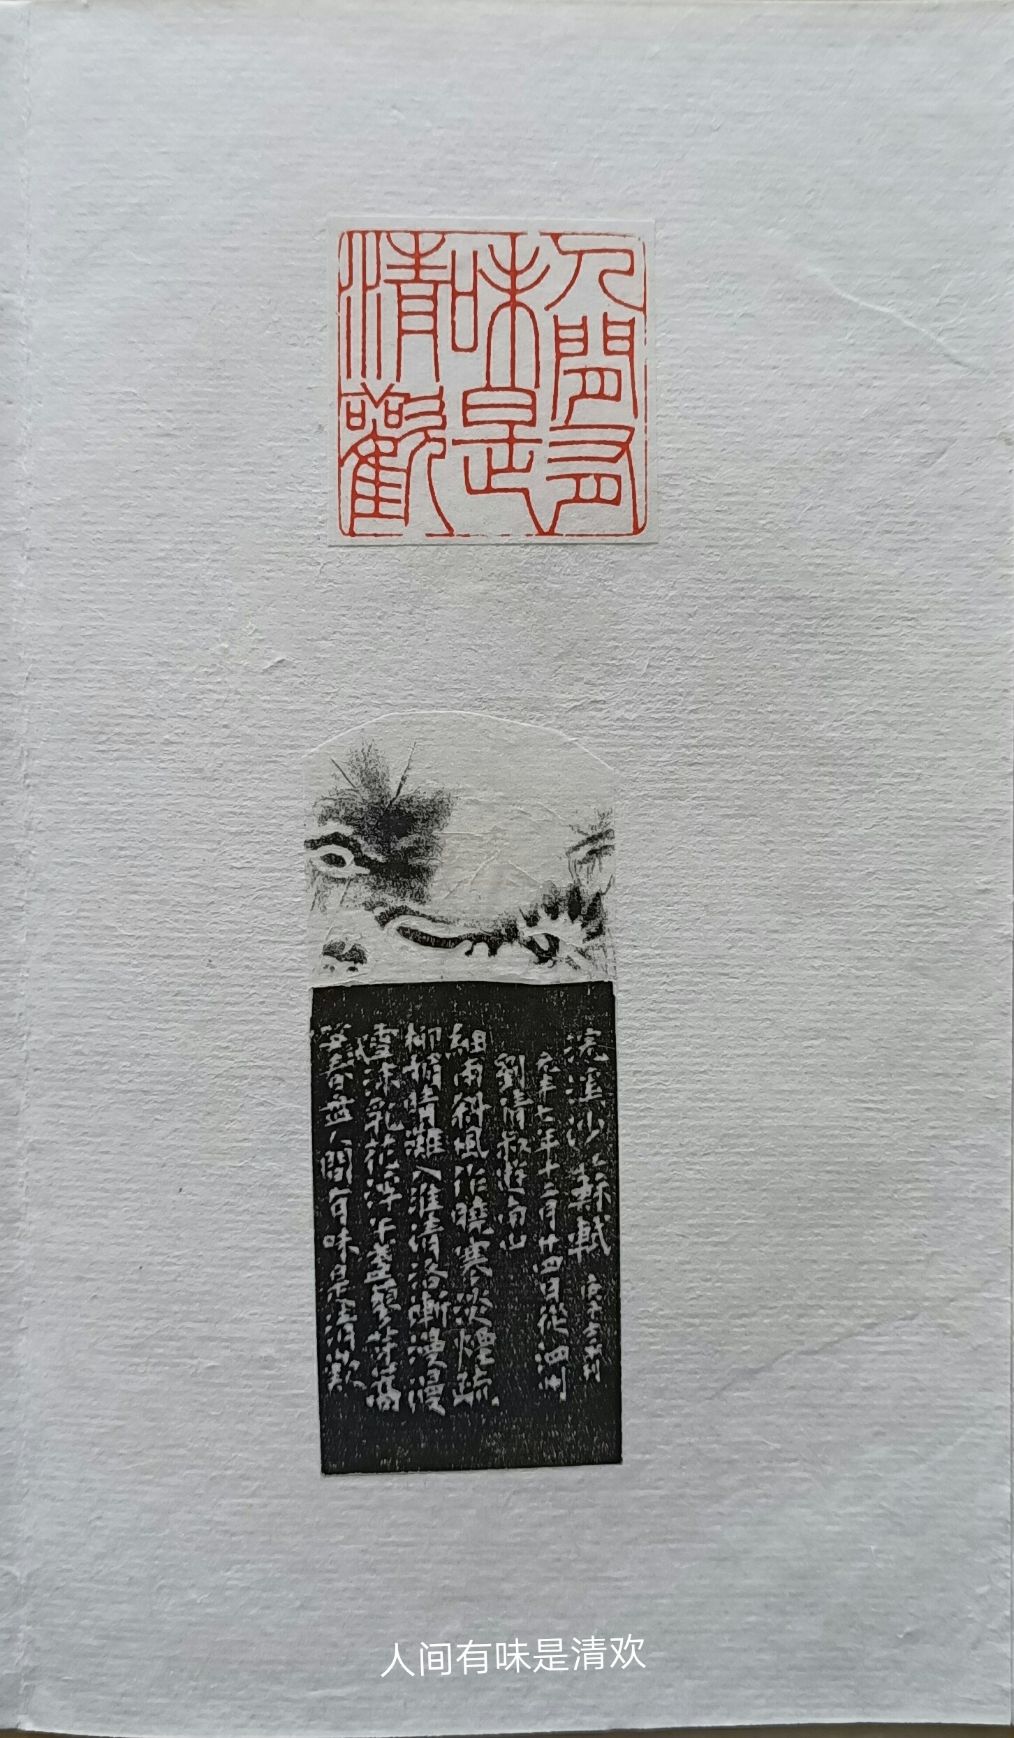 人間有
味是
清歡
浣溪沙 蘇軾 庚子 刊
元丰七年十二月廿四日從泗州
劉倩叔遊南山
細雨斜風作曉寒淡煙疏
柳媚晴灘入淮清洛漸漫漫
雪沫乳花浮午盞蓼茸蒿
筍試春盤人間有味是清歡
人间有味是清欢